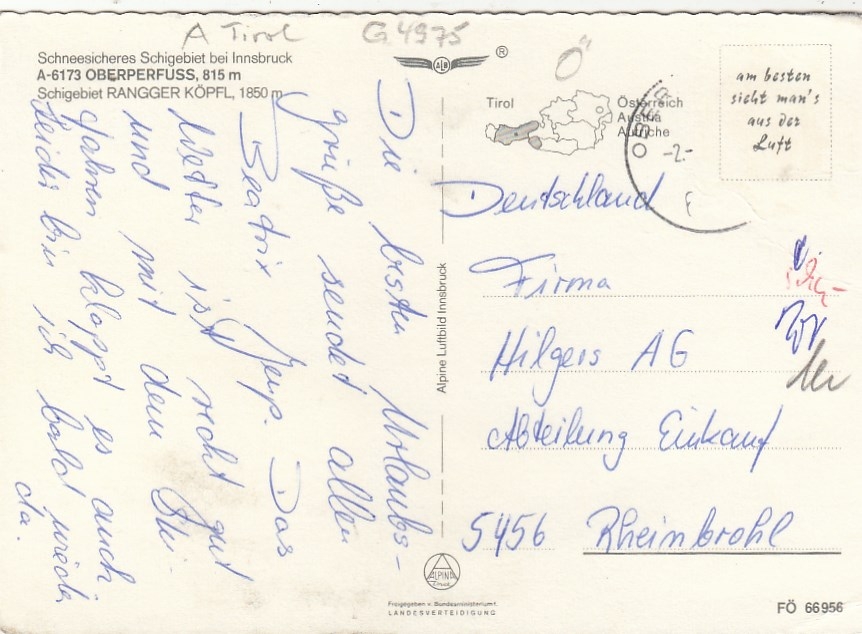 A Tirol G 4975
Schneesicheres Schigebiet bei Innsbruck
A-6173 OBERPERFUSS, 815 m
Schigebiet RANGGER KÖPFL, 1850 m
ALB ®
Ö
Tirol
Österreich
Austria
Autriche
am besten
sieht man's
aus der
Luft
OBER
-2.-
Die besten Urlaubs-
grüße sendet allen
Beatrix Jeup. Das
Wetter ist recht gut
und mit dem Ski-
fahren klappt es auch.
Leider bin ich bald wieder
da.
Alpine Luftbild Innsbruck
Deutschland
Firma
Hilgers AG
Abteilung Einkauf
5456 Rheinbrohl
ALPINA
Freigegeben v. Bundesministerium f.
LANDESVERTEIDIGUNG
FÖ 66956